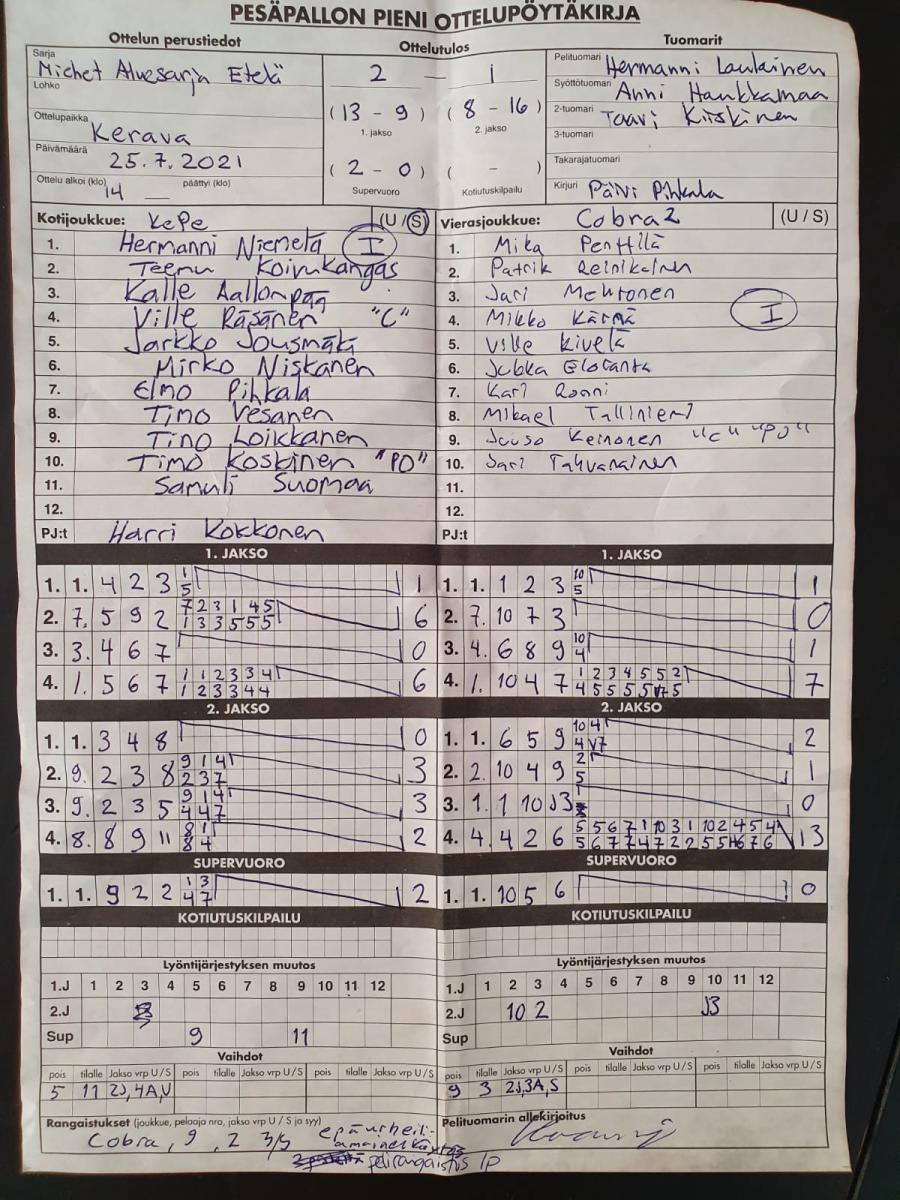 PESÄPALLON PIENI OTTELUPÖYTÄKIRJA
Ottelun perustiedot Ottelutulos Tuomarit
Sarja Miehet Aluesarja Etelä
Lohko
Ottelupaikka Kerava
Päivämäärä 25.7.2021
Ottelu alkoi (klo) 14 päättyi (klo) —
2 — 1
(13 - 9) (8 - 16)
1. jakso 2. jakso
(2 - 0) ( - )
Supervuoro Kotiutuskilpailu
Pelituomari Hermanni Laulainen
Syöttötuomari Anni Haukkamaa
2-tuomari Taavi Kiiskinen
3-tuomari
Takarajatuomari
Kirjuri Päivi Pihkala
Kotijoukkue: KePe (U / S)
1. Hermanni Niemelä I
2. Teemu Koivukangas
3. Kalle Aallonpää
4. Ville Räsänen "C"
5. Jarkko Jousmäki
6. Mirko Niskanen
7. Elmo Pihkala
8. Timo Vesanen
9. Timo Loikkanen
10. Timo Koskinen "PO"
11. Samuli Suomaa
12.
PJ:t Harri Kokkonen
Vierasjoukkue: Cobra 2 (U / S)
1. Mika Penttilä
2. Patrik Reinikainen
3. Jari Mehtonen
4. Mikko Kärnä I
5. Ville Kivelä
6. Jukka
7. Kari Ronni
8. Mikael Talliniemi
9. Juuso Keinonen "C" "PO"
10. Jari Tahvanainen
11.
12.
PJ:t
1. JAKSO
1. 1. 4 2 3 1 5 1
2. 7. 5 9 2 7 2 3 1 4 5 6
1 3 3 5 5 5
3. 3. 4 6 7 0
4. 1. 5 6 7 1 1 2 3 3 4 6
1 2 3 3 4 4
2. JAKSO
1. 1. 3 4 8 0
2. 9. 2 3 8 9 1 4 3
2 3 7
3. 9. 2 3 5 9 1 4 3
4 4 7
4. 8. 8 9 11 8 1 2
8 4
SUPERVUORO
1. 1. 9 2 2 1 3 2
4 7
KOTIUTUSKILPAILU
1. JAKSO
1. 1. 1 2 3 10 1
5
2. 7. 10 7 3 0
3. 4. 6 8 9 10 1
4
4. 1. 10 4 7 1 2 3 4 5 5 2 7
4 5 5 5 5 V7 5
2. JAKSO
1. 1. 6 5 9 10 4 2
4 V7
2. 2. 10 4 9 2 1
5
3. 1. 1 10 J3 0
4. 4. 4 2 6 5 5 6 7 1 10 3 1 10 2 4 5 4 13
5 6 7 7 4 7 2 2 5 5 6 7 6
SUPERVUORO
1. 1. 10 5 6 0
KOTIUTUSKILPAILU
Lyöntijärjestyksen muutos
1.J 1 2 3 4 5 6 7 8 9 10 11 12
2.J
Sup 9 11
Vaihdot
pois tilalle Jakso vrp U / S pois tilalle Jakso vrp U / S pois tilalle Jakso vrp U / S
5 11 2J, 4A, V
Lyöntijärjestyksen muutos
1.J 1 2 3 4 5 6 7 8 9 10 11 12
2.J 10 2 J3
Sup
Vaihdot
pois tilalle Jakso vrp U / S pois tilalle Jakso vrp U / S pois tilalle Jakso vrp U / S
9 3 2J, 3A, S
Rangaistukset (joukkue, pelaaja nro, jakso vrp U / S ja syy)
Cobra, 9, 2 3/S epäurheili-
amainen
pelirangaistus 1p
Pelituomarin allekirjoitus